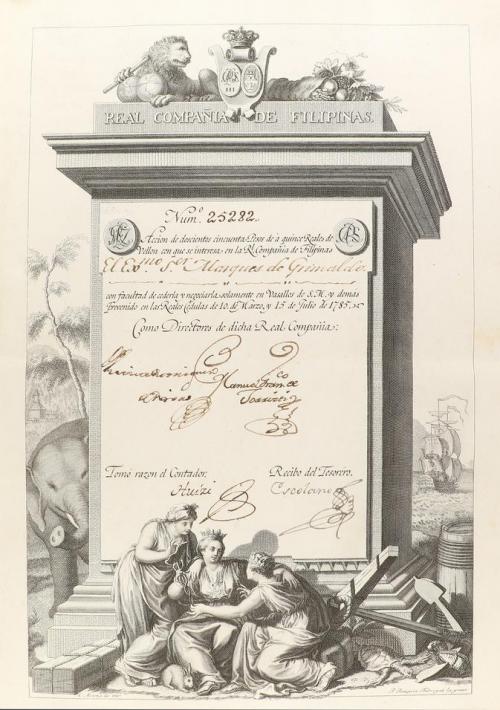 REAL COMPAÑIA DE FILIPINAS.
Num.º 25282.
Accion de doscientos cincuenta Pesos de á quince Reales de
Vellon con que se interesa en la Rl. Compañia de Filipinas
El Exmo Sor Marques de Grimaldo
con facultad de cederla y negociarla solamente en Vasallos de S.M. y demas
prevenido en las Reales Cedulas de 10 de Marzo, y 15 de Julio de 1785.
Como Directores de dicha Real Compañia:
Manuel Fran.co
Tomó razon el Contador.
Recibo del Tesorero.
Huizi
Escolano